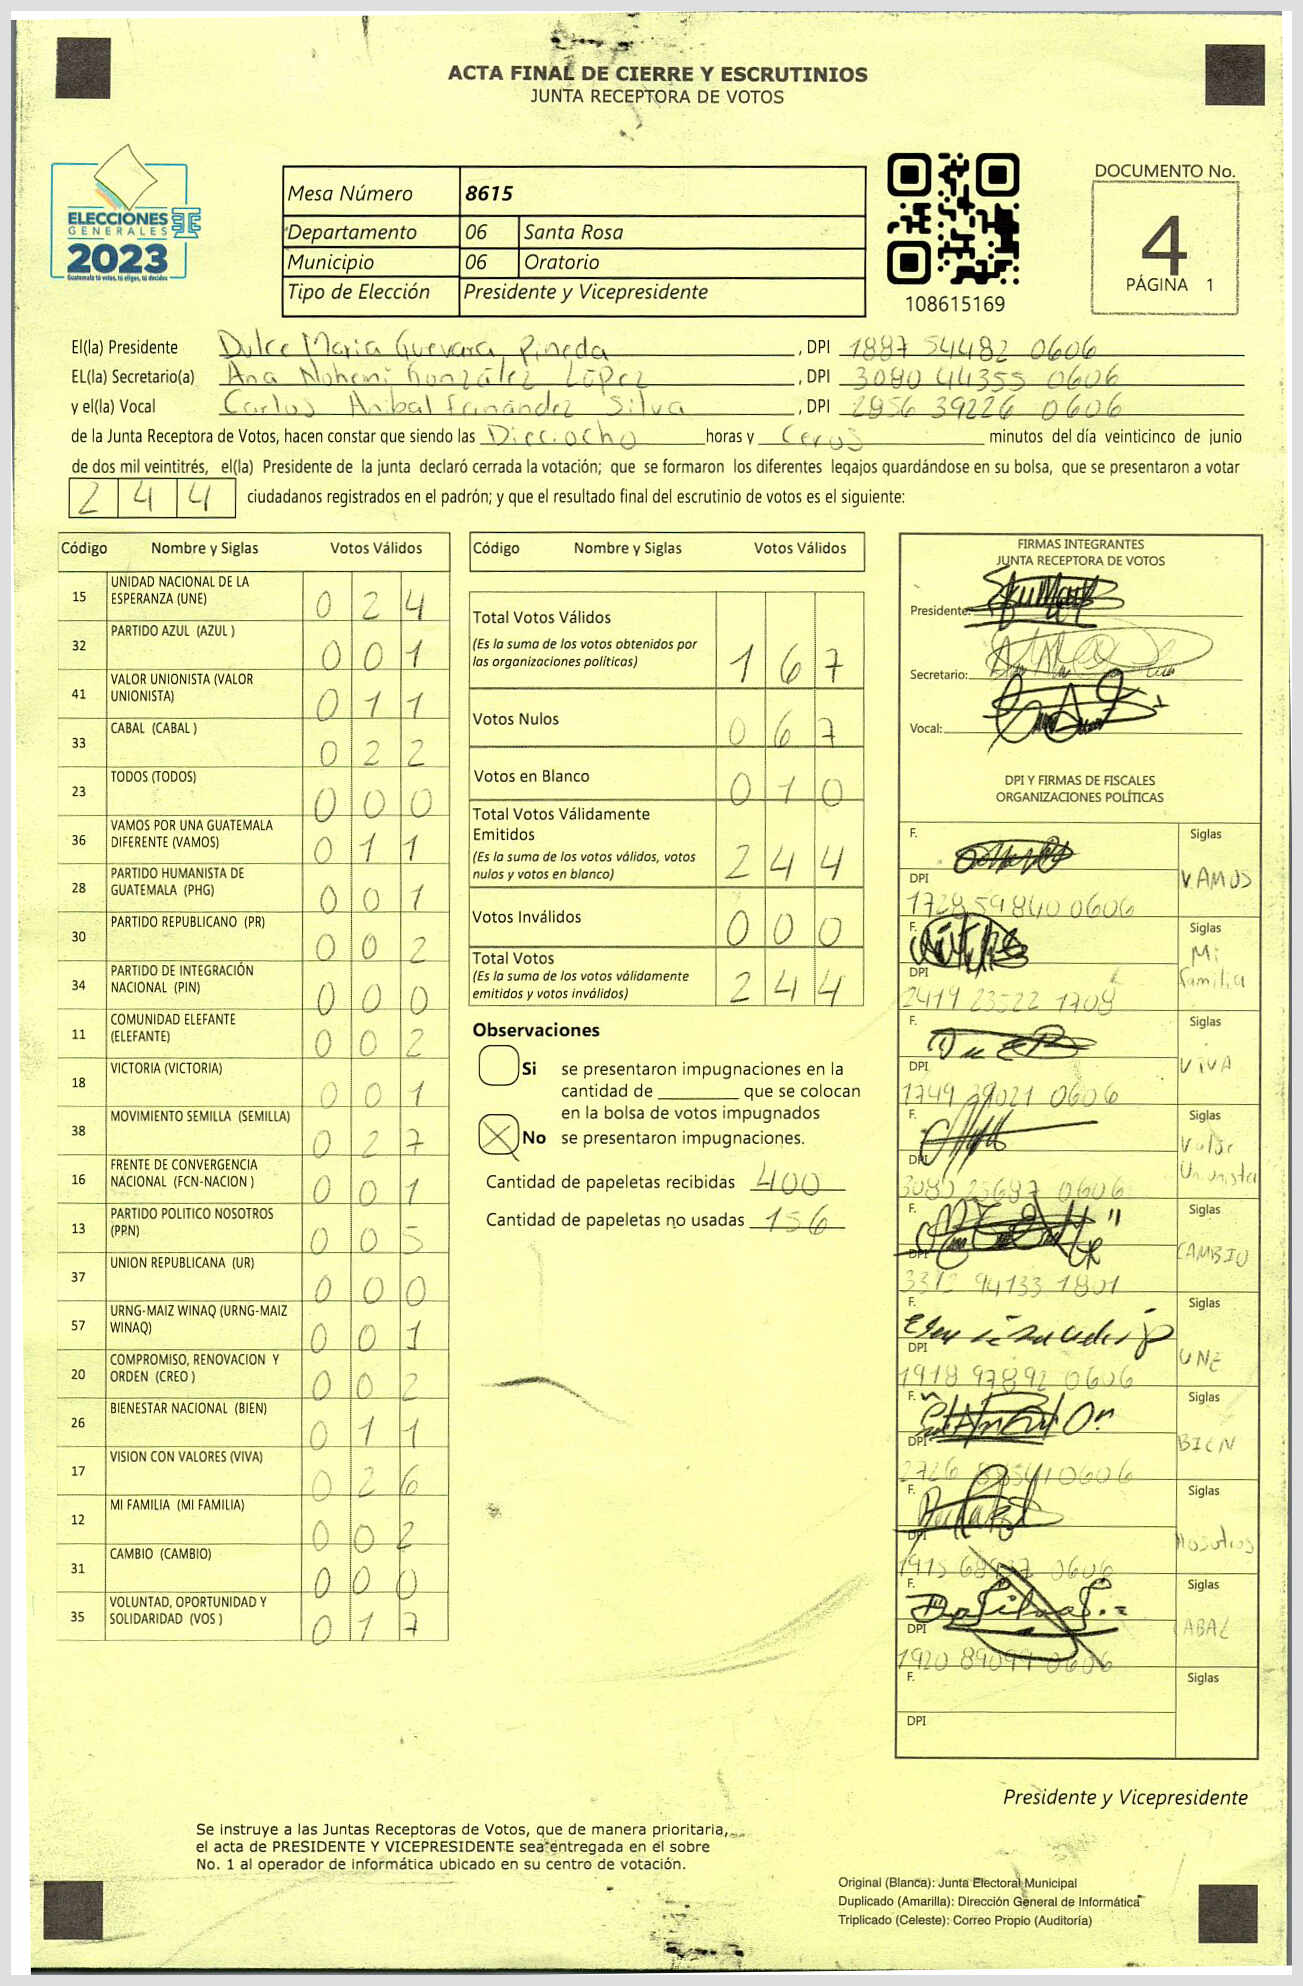 ACTA FINAL DE CIERRE Y ESCRUTINIOS
JUNTA RECEPTORA DE VOTOS
ELECCIONES
GENERALES
2023
Guatemala tú votas, tú eliges, tú decides
Mesa Número 8615
Departamento 06 Santa Rosa
Municipio 06 Oratorio
Tipo de Elección Presidente y Vicepresidente
108615169
DOCUMENTO No.
4
PÁGINA 1
El(la) Presidente Dulce Maria Guevara Pineda, DPI 1887 54482 0606
EL(la) Secretario(a) Ana Nohemi González López, DPI 3080 44355 0606
y el(la) Vocal Carlos Anibal Fernández Silva, DPI 2856 39226 0606
de la Junta Receptora de Votos, hacen constar que siendo las Dieciocho horas y Ceros minutos del día veinticinco de junio
de dos mil veintitrés, el(la) Presidente de la junta declaró cerrada la votación; que se formaron los diferentes legajos guardándose en su bolsa, que se presentaron a votar
244 ciudadanos registrados en el padrón; y que el resultado final del escrutinio de votos es el siguiente:
Código Nombre y Siglas Votos Válidos
15 UNIDAD NACIONAL DE LA ESPERANZA (UNE) 024
32 PARTIDO AZUL (AZUL ) 001
41 VALOR UNIONISTA (VALOR UNIONISTA) 011
33 CABAL (CABAL ) 022
23 TODOS (TODOS) 000
36 VAMOS POR UNA GUATEMALA DIFERENTE (VAMOS) 011
28 PARTIDO HUMANISTA DE GUATEMALA (PHG) 001
30 PARTIDO REPUBLICANO (PR) 002
34 PARTIDO DE INTEGRACIÓN NACIONAL (PIN) 000
11 COMUNIDAD ELEFANTE (ELEFANTE) 002
18 VICTORIA (VICTORIA) 001
38 MOVIMIENTO SEMILLA (SEMILLA) 027
16 FRENTE DE CONVERGENCIA NACIONAL (FCN-NACION ) 001
13 PARTIDO POLITICO NOSOTROS (PPN) 005
37 UNION REPUBLICANA (UR) 000
57 URNG-MAIZ WINAQ (URNG-MAIZ WINAQ) 001
20 COMPROMISO, RENOVACION Y ORDEN (CREO ) 002
26 BIENESTAR NACIONAL (BIEN) 011
17 VISION CON VALORES (VIVA) 026
12 MI FAMILIA (MI FAMILIA) 002
31 CAMBIO (CAMBIO) 000
35 VOLUNTAD, OPORTUNIDAD Y SOLIDARIDAD (VOS ) 017
Código Nombre y Siglas Votos Válidos
Total Votos Válidos 167
(Es la suma de los votos obtenidos por
las organizaciones políticas)
Votos Nulos 067
Votos en Blanco 010
Total Votos Válidamente
Emitidos 244
(Es la suma de los votos válidos, votos
nulos y votos en blanco)
Votos Inválidos 000
Total Votos 244
(Es la suma de los votos válidamente
emitidos y votos inválidos)
Observaciones
Si se presentaron impugnaciones en la
cantidad de ________ que se colocan
en la bolsa de votos impugnados
X No se presentaron impugnaciones.
Cantidad de papeletas recibidas 400
Cantidad de papeletas no usadas 156
FIRMAS INTEGRANTES
JUNTA RECEPTORA DE VOTOS
Presidente:
Secretario:
Vocal:
DPI Y FIRMAS DE FISCALES
ORGANIZACIONES POLÍTICAS
F. Siglas VAMOS
DPI 1728 59840 0606
F. Siglas Mi familia
DPI 2419 23522 1708
F. Siglas VIVA
DPI 1749 29021 0606
F. Siglas Valor Unionista
DPI 3080 25687 0606
F. Siglas CAMBIO
DPI 3312 94133 1801
F. Siglas UNE
DPI 1918 97892 0606
F. Siglas BIEN
DPI 0606
F. Siglas Nosotros
DPI 1915 0606
F. Siglas CABAL
DPI 1920 89099 0606
F. Siglas
DPI
Presidente y Vicepresidente
Se instruye a las Juntas Receptoras de Votos, que de manera prioritaria,
el acta de PRESIDENTE Y VICEPRESIDENTE sea entregada en el sobre
No. 1 al operador de informática ubicado en su centro de votación.
Original (Blanca): Junta Electoral Municipal
Duplicado (Amarilla): Dirección General de Informática
Triplicado (Celeste): Correo Propio (Auditoría)